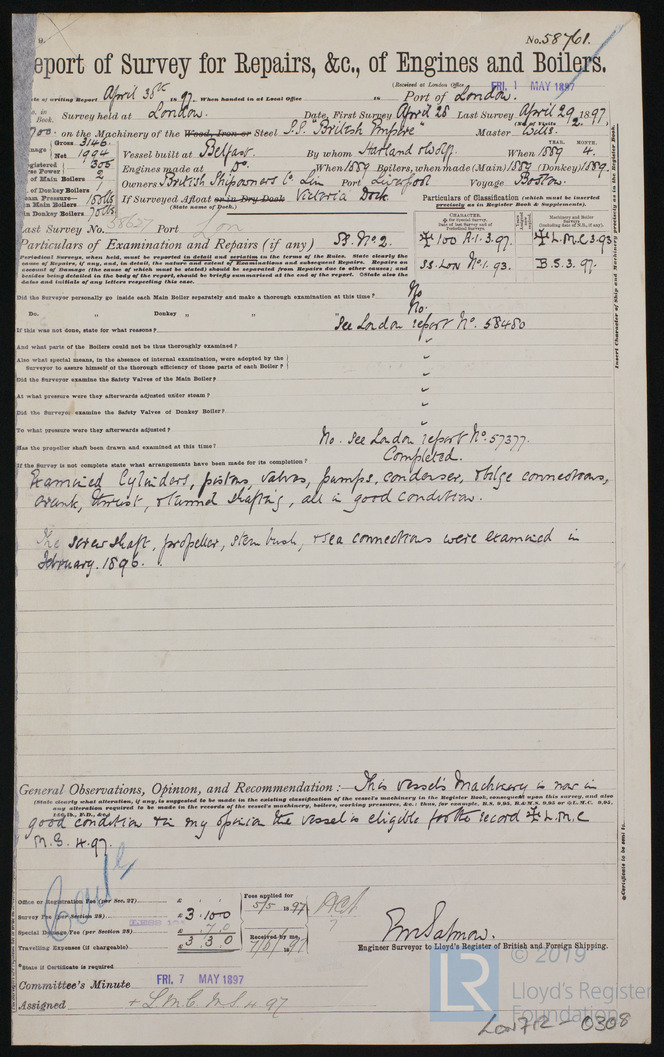 No. 58761.
Report of Survey for Repairs, &c., of Engines and Boilers.
(Received at London Office FRI. MAY 1897
Date of writing Report April 30th 1897. When handed in at Local Office 18 Port of London.
Survey held at London. Date, First Survey April 28 Last Survey April 29 1897.
Book. (No. of Visits 2.
700. on the Machinery of the Wood, Iron or Steel S.S. "British Empire" Master Wills.
Gross 3146. Net 1994 Vessel built at Belfast. By whom Harland & Wolff. YEAR. MONTH. When 1889 4.
Registered Horse Power 300 Engines made at Do. When 1889 Boilers, when made (Main) 1889 (Donkey) 1889.
No. of Main Boilers 2 Owners British Shipowners Co Lim Port Liverpool Voyage Boston.
No. of Donkey Boilers If Surveyed Afloat or in Dry Dock Victoria Dock
(State name of Dock.)
Particulars of Classification (which must be inserted precisely as in Register Book & Supplements).
in Donkey Boilers
Last Survey No. 58627 Port
CHARACTER. Machinery and Boiler Surveys
Particulars of Examination and Repairs (if any) SS. No 2. ✠ 100 A.1.3.97. ✠ L.M.C 3.93
SS. LON No 1. 93. B.S. 3. 97.
Periodical Surveys, when held, must be reported in detail and seriatim in the terms of the Rules. State clearly the
cause of Repairs, if any, and, in detail, the nature and extent of Examinations and subsequent Repairs. Repairs on
account of Damage (the cause of which must be stated) should be separated from Repairs due to other causes; and
besides being detailed in the body of the report, should be briefly summarised at the end of the report. State also the
dates and initials of any letters respecting this case.
Insert Character of Ship and Machinery precisely as in the Register Book.
Did the Surveyor personally go inside each Main Boiler separately and make a thorough examination at this time? No
Do. „ Donkey „ „ „ No.
If this was not done, state for what reasons? See London report No. 58480
And what parts of the Boilers could not be thoroughly examined? „
Also what special means, in the absence of internal examination, were adopted by the
Surveyor to assure himself of the thorough efficiency of those parts of each Boiler? „
Did the Surveyor examine the Safety Valves of the Main Boiler? „
At what pressure were they afterwards adjusted under steam? „
Did the Surveyor examine the Safety Valves of Donkey Boiler? „
To what pressure were they afterwards adjusted? „
Has the propeller shaft been drawn and examined at this time? No. See London report No. 57377.
If the Survey is not complete state what arrangements have been made for its completion? Completed.
Examined Cylinders, pistons, valves, pumps, condenser, & bilge connections,
crank, thrust, & tunnel shafting, all in good condition.
The screw shaft, propeller, stern bush, & sea connections were examined in
February. 1896.
General Observations, Opinion, and Recommendation:— This vessel's Machinery is now in
(State clearly what alteration, if any, is suggested to be made in the existing classification of the vessel's machinery in the Register Book, consequent upon this survey, and also
any alteration required to be made in the records of the vessel's machinery, boilers, working pressures, &c.: thus, for example, B.S. 9,95, B.&M.S. 9,95 or ✠L.M.C. 9,95,
good condition & in my opinion the vessel is eligible for the record ✠ L.M.C
M.S. 4.97.
Office or Registration Fee (per Sec. 27) £
Survey Fee (per Section 28) £ 3.10.0
Special Damage Fee (per Section 28) £
Travelling Expenses (if chargeable) £ 3 3 0
Fees applied for 5/5 1897
Received by me,
Engineer Surveyor to Lloyd's Register of British and Foreign Shipping.
*State if Certificate is required
Committee's Minute FRI. 7 MAY 1897
Assigned + L.M.C. M.S. 4 97
*Certificate to be sent to
© 2019
LR
Lloyd's Register
Foundation
LON712 - 0308